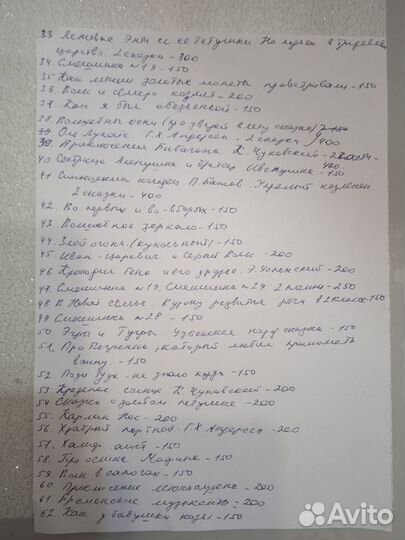 33 Ленивые Эти
царства. 2 сказки - 300
34. Смешинка №19. - 150
35. Как мыши золотые монеты проветривали - 150
36. Волк и семеро козлят - 200
37. Как я был обезьянкой - 150
38. Волшебные очки (про зверей в лесу сказки)
Оле Лукойе. Г.Х Андерсен. 2 сказки 400
39. Приключения Бибигона К. Чуковский - 2 части - 400
40 Сестрица Аленушка и братец Иванушка - 150
41. П. Бажов. Упрямый козленок
2 сказки - 400
42. Во первых и во-вторых - 150
43. Волшебное зеркало - 150
44. Злой огонь. (кукольный) - 150
45. Иван-царевич и Серый Волк - 200
46. Крокодил Гена и его друзья. Э. Успенский - 200
47. Смешинка №19, Смешинка №29 2 - 250
48. В новой семье. К уроку развития речи в 2 классе - 150
49 Смешинка №28 - 150
50. Эгри и Тугри. Узбекская народ сказка - 150
51. Про Тигренка, который любил принимать
ванну. - 150
52. Поди туда - не знаю куда - 150
53. Краденое солнце К. Чуковский - 200
54 Сказка о золотом петушке - 200
55. Карлик Нос - 200
56. Храбрый портной. Г.Х Андерсен - 200
57. Халиф аист - 150
58. Про ослика Мафина - 150
59. Волк в сапогах - 150
60. Приключение - 200
61. Бременские музыканты - 200
62. Как у бабушки козел - 150
Avito